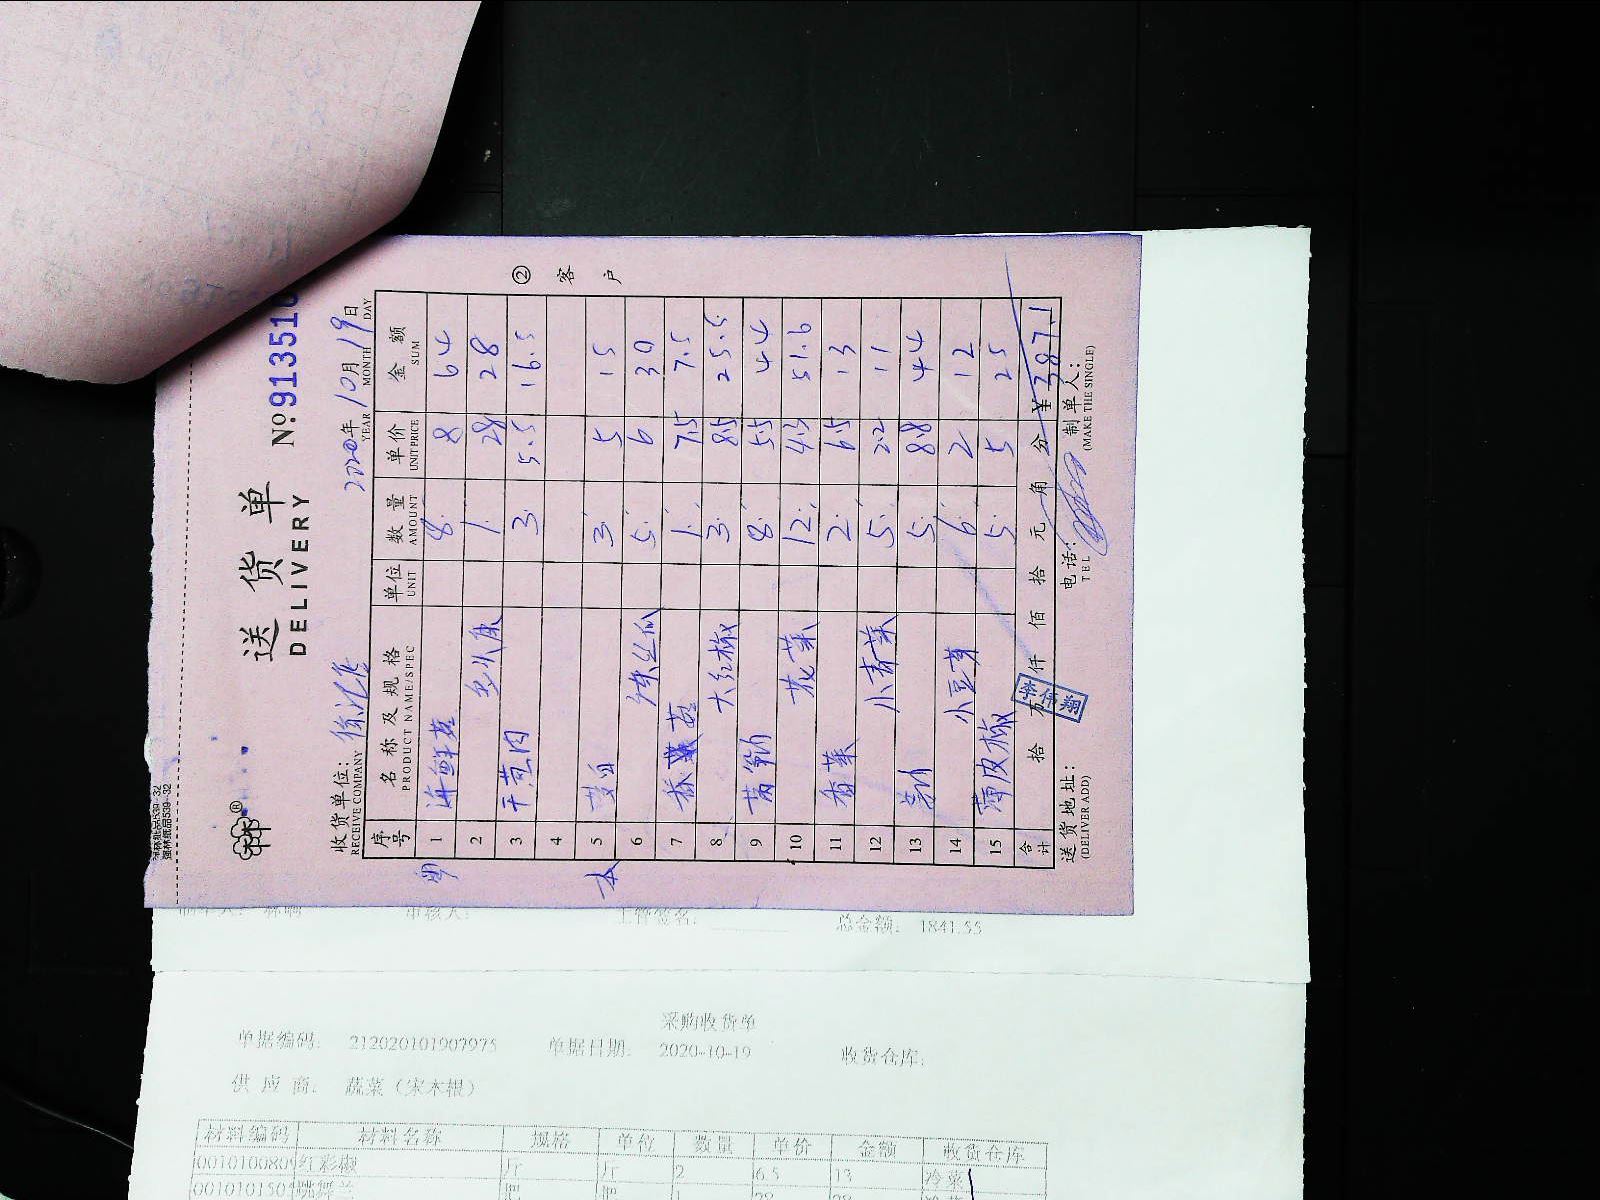 送货单
DELIVERY
№ 913510
收货单位：徐汇店 2020年10月19日
RECEIVE COMPANY YEAR MONTH DAY
② 客户
序号 名称及规格 单位 数量 单价 金额
PRODUCT NAME/SPEC UNIT AMOUNT UNIT PRICE SUM
1 海鲜菇 8 8 64
2 1 28 28
3 干葱肉 3 5.5 16.5
4
5 3 5 15
6 丝瓜 5 6 30
7 1 7.5 7.5
8 大红椒 3 8.5 25.5
9 莴笋 8 5.5 44
10 花菜 12 4.3 51.6
11 香菜 2 6.5 13
12 小青菜 5 2.2 11
13 5 8.8 44
14 小豆芽 6 2 12
15 薄皮椒 5 5 25
合计 拾 万 仟 佰 拾 元 角 分 ¥387.1
李伟翔
送货地址： 电话： 制单人：
(DELIVER ADD) TEL (MAKE THE SINGLE)
强林纸品539-32
总金额: 1841.55
采购收货单
单据编码: 212020101907975 单据日期: 2020-10-19 收货仓库:
供 应 商: 蔬菜（宋本根）
材料编码 材料名称 规格 单位 数量 单价 金额 收货仓库
红彩椒 斤 斤 2 6.5 13 冷菜